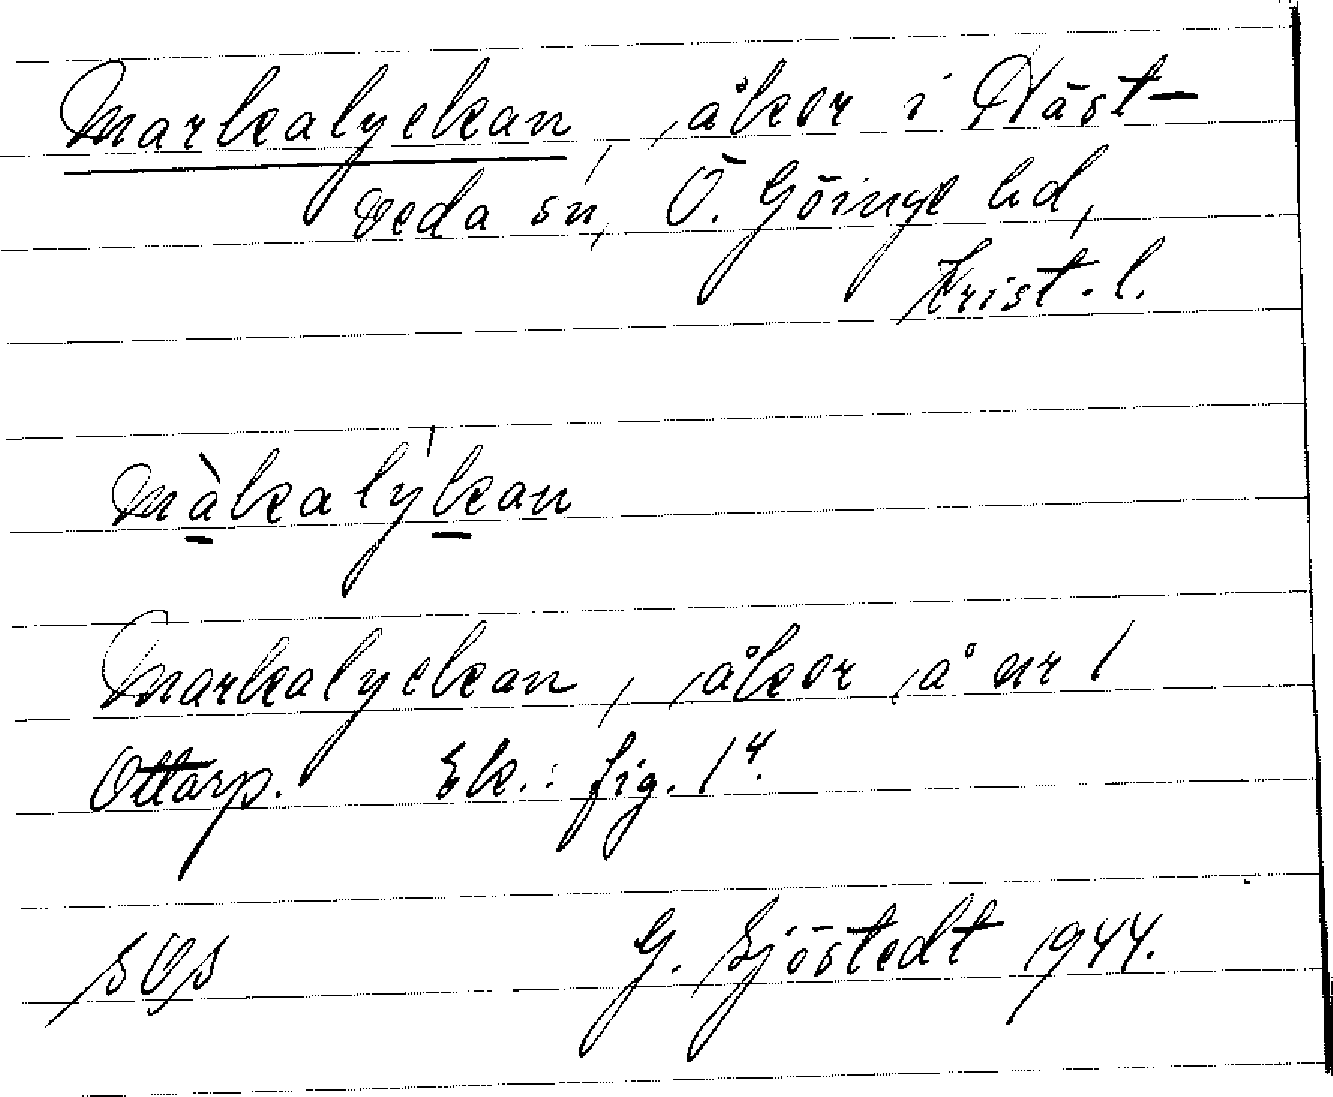 Markalyckan, åker i Näst-
veda sn, Ö. Göinge hd,
Krist. l.
màkalýkan
Markalyckan, åker å nr 1
Ottarp. Ek.: fig. 14.
G. Sjöstedt 1944.